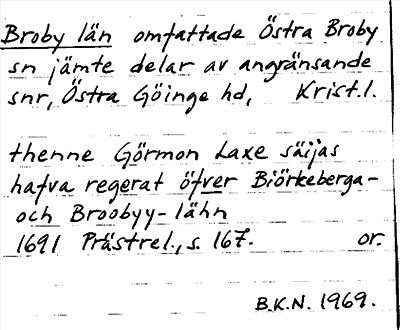 Broby län omfattade Östra Broby
sn jämte delar av angränsande
snr, Östra Göinge hd, Krist.l.
thenne Görmon Laxe säijas
hafva regerat öfver Biörkeberga-
och Broobyy-lähn
1691 Prästrel., s. 167. or.
B.K.N. 1969.